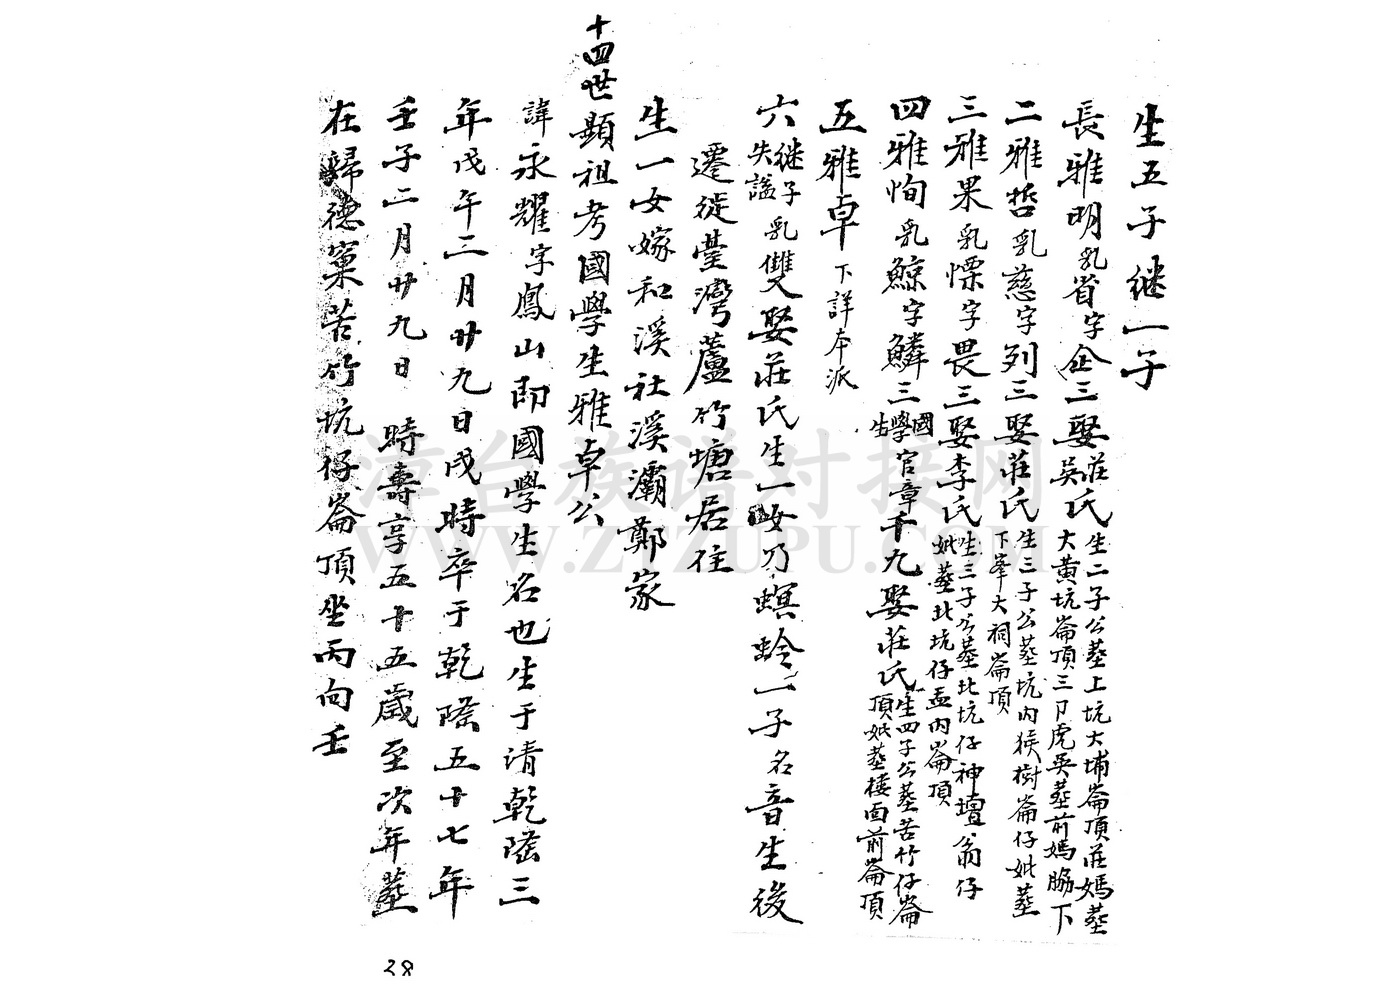 生五子継一子
長雅明乳省字企三娶莊吳氏生二子公塟上坑大埔崙頂莊媽塟大黄坑崙頂三卩虎吳塟前媽脇下
二雅哲乳慈字列三娶莊氏生三子公塟坑内猴樹崙仔妣塟下峯大祠崙頂
三雅果乳慄字畏三娶李氏生三子公塟北坑仔神壇翁仔妣塟北坑仔盂内崙頂
四雅恂乳鯨字鱗三國學生官章千九娶莊氏生四子公塟苦竹仔崙頂妣塟楼面前崙頂
五雅卓下詳本派
六継子失謚乳雙娶莊氏生一女乃螟蛉一子名音生後
遷徙臺灣蘆竹塘居住
生一女嫁和溪社溪灞鄭家
十四世顯祖考國學生雅卓公
諱永耀字鳳山即國學生名也生于清乾隆三
年戊午三月廿九日戌時卒于乾隆五十七年
壬子二月廿九日 時壽享五十五歲至次年塟
在歸德窠苦竹坑仔崙頂坐丙向壬
38
漳台族谱对接网
WWW.ZTZUPU.COM